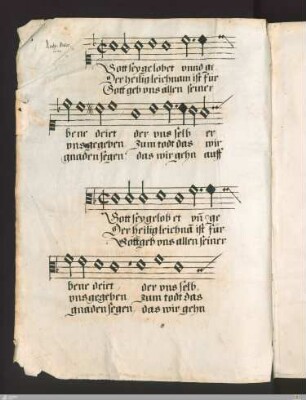 Gott sey gelobet vnnd ge
Der heilig leichnam ist für
Gott geb vns allen seiner
bene deiet der vns selb er
vns gegeben zum todt das wir
gnaden segen das wir gehn auff
Gott sey gelob et vn̄ ge
Der heilig leichnā ist für
Gott geb vns allen seiner
bene deiet der vns selb
vns gegeben zum todt das
gnaden segen das wir gehn